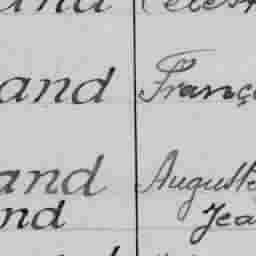 and Franç
and Auguste
nd Jea